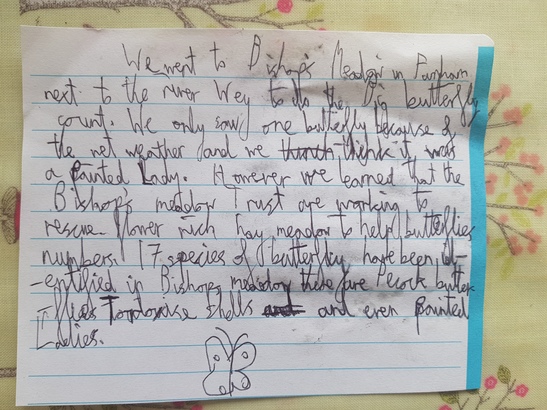 We went to Bishops Meadow in Farnham
next to the river Wey to do the Big butterfly
count. We only saw one butterfly because of
the wet weather and we think it was
a Painted Lady. However we learned that the
Bishops meadow Trust are working to
rescue flower rich hay meadow to help butterflies
numbers. 17 species of butterfly have been id-
-entified in Bishops meadow these are Pecock butter-
-flies Tordorise shells and even painted
Ladies.